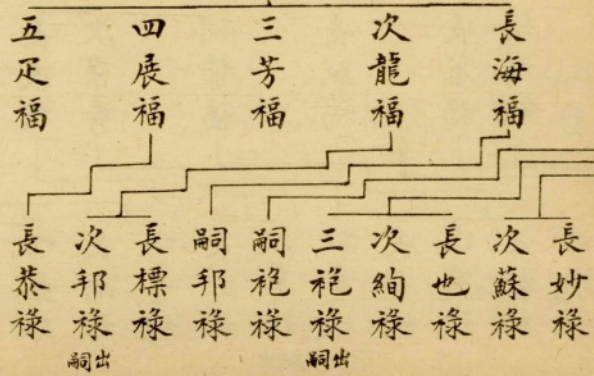 長海福
次龍福
三芳福
四展福
五疋福
長妙祿
次蘇祿
長也祿
次絢祿
三袍祿
出嗣
嗣袍祿
嗣邦祿
長標祿
次邦祿
出嗣
長恭祿